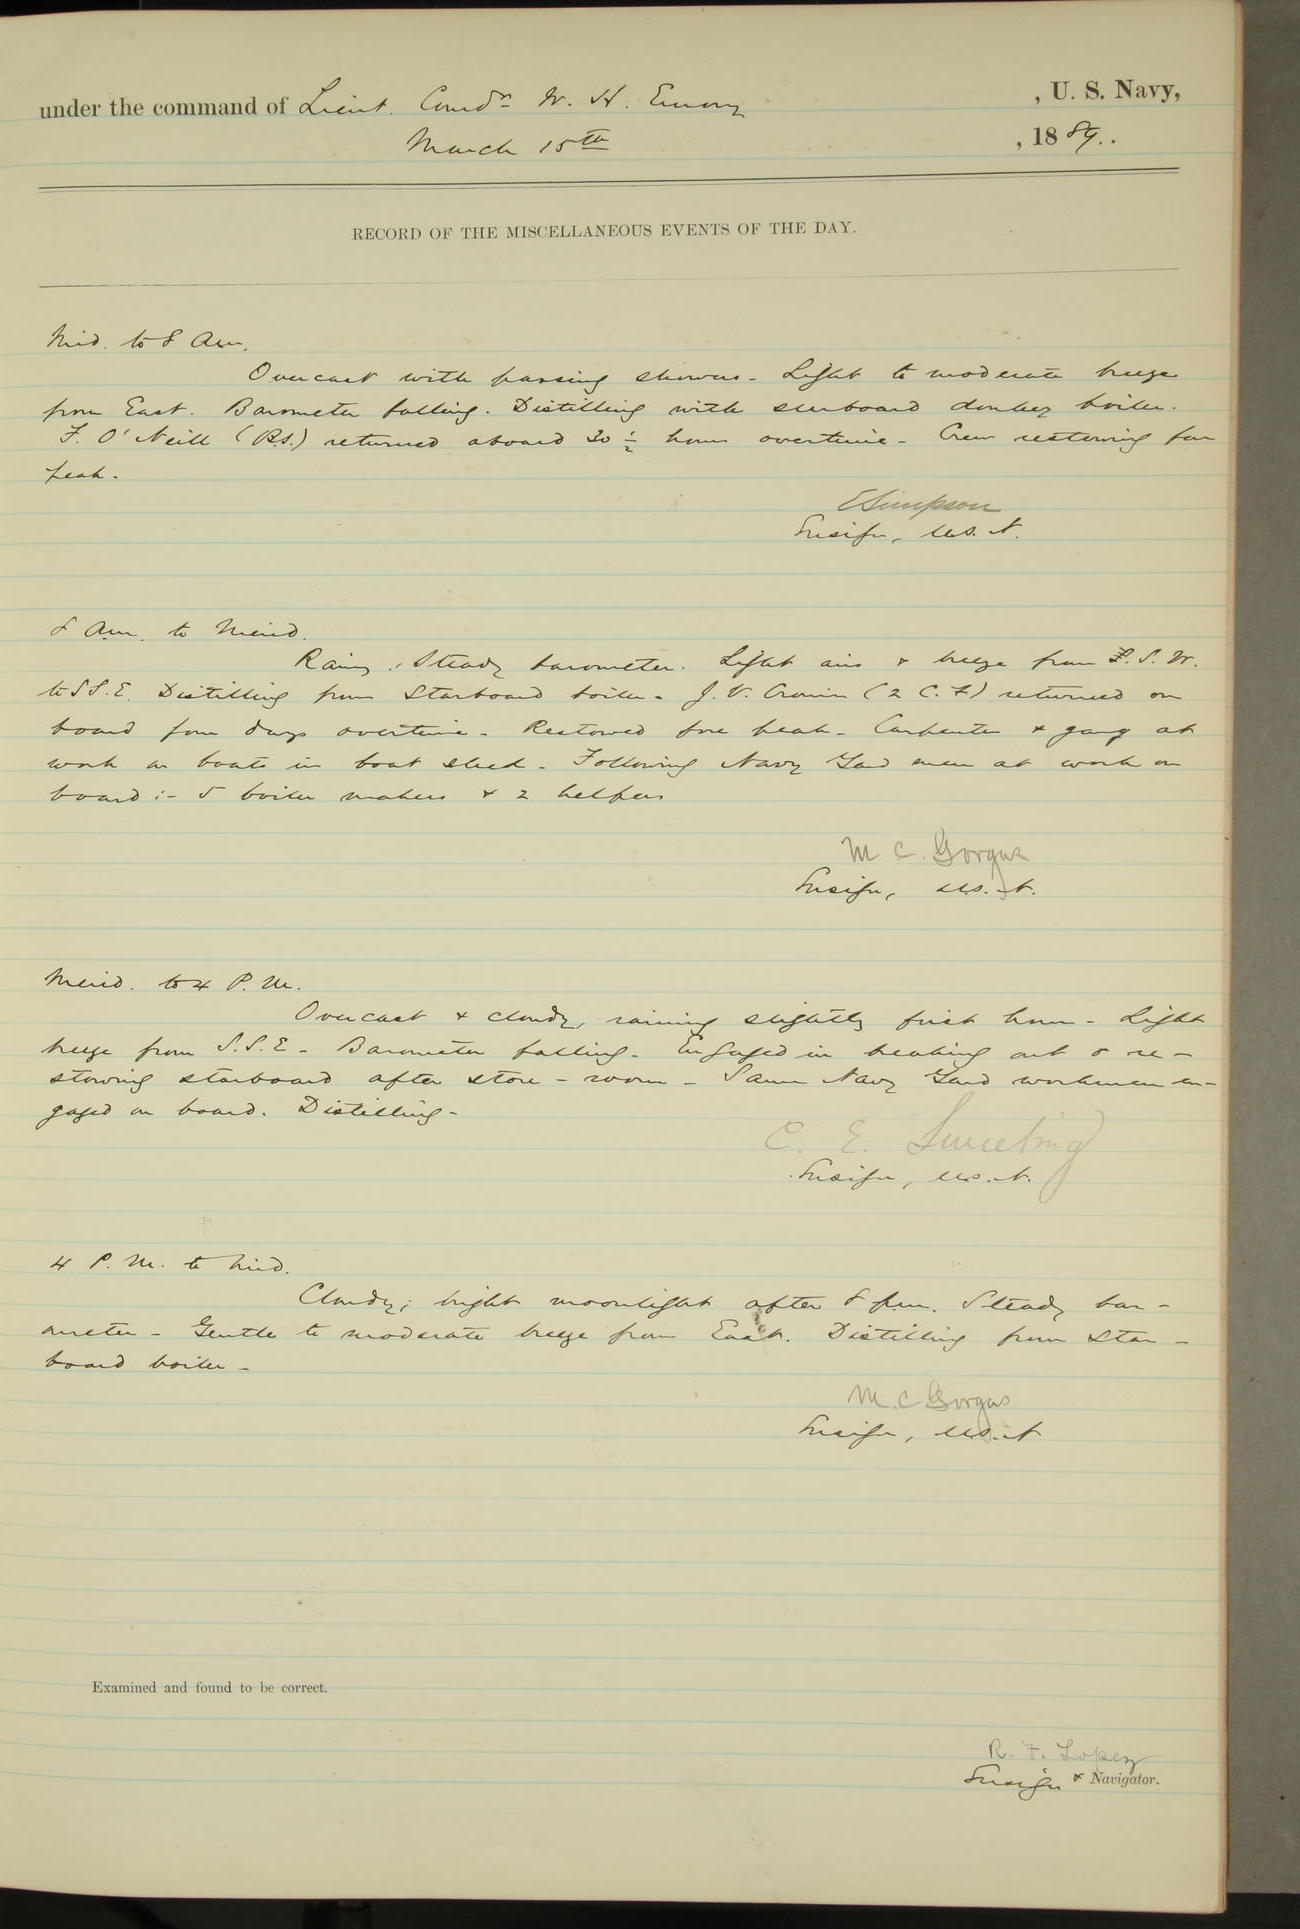 under the command of Lieut. Comdr. W. H. Emory, U. S. Navy,
March 15th, 1889.
RECORD OF THE MISCELLANEOUS EVENTS OF THE DAY.
Mid. to 8 Am.
Overcast with passing showers - Light to moderate breeze
from East. Barometer falling. Distilling with starboard donkey boiler.
F. O'Neill (B.S.) returned aboard 20 ½ hours overtime - Crew restowing fore
peak.
E Simpson
Ensign, U.S.N.
8 Am. to Merid.
Rainy. Steady barometer. Light airs & breeze from S. W.
to S.S.E. Distilling from Starboard boiler - J. V. Cronin (2 C. F.) returned on
board four days overtime - Restowed fore peak - Carpenter & gang at
work on boats in boat shed - Following Navy Yard men at work on
board :- 5 boiler makers & 2 helpers
M C. Gorgas
Ensign, U.S.N.
Merid. to 4 P.M.
Overcast & cloudy, raining slightly first hour - Light
breeze from S.S.E - Barometer falling - Engaged in breaking out & re-
stowing starboard after store-room - Same Navy Yard workmen en-
gaged on board. Distilling -
C. E. Sweeting
Ensign, U.S.N.
4 P.M. to Mid.
Cloudy; bright moonlight after 8 p.m. Steady bar-
ometer - Gentle to moderate breeze from East. Distilling from Star-
board boiler -
M. C Gorgas
Ensign, U.S.N
Examined and found to be correct.
R. F. Lopez
Ensign & Navigator.